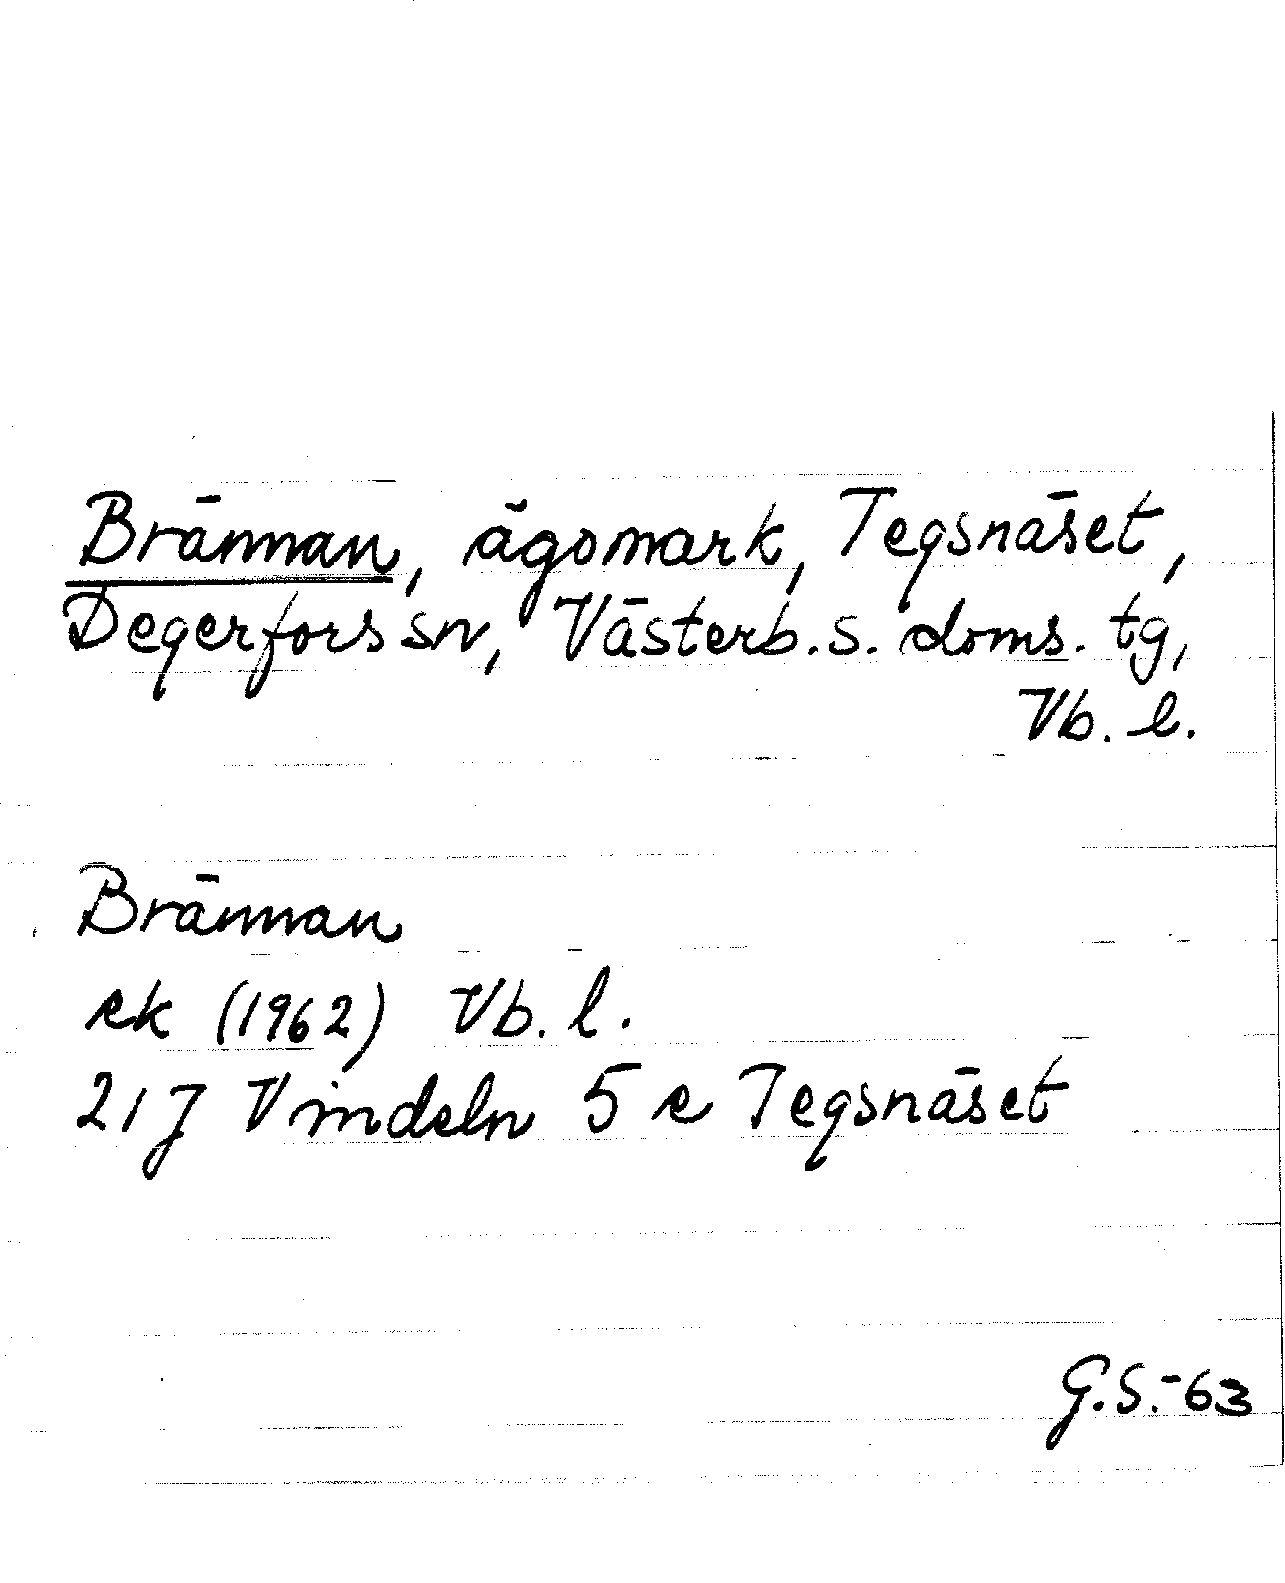 Brännan, ägomark, Tegsnäset,
Degerfors sn, Västerb. s. doms. tg,
Vb. l.
Brännan
ek (1962) Vb. l.
21 J Vindeln 5 e Tegsnäset
G.S.-63